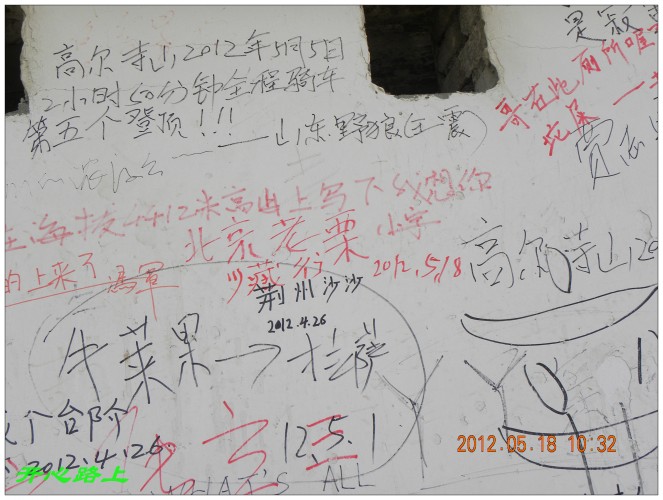 高尔寺山,2012年5月5日
2小时50分钟全程骑车
第五个登顶!!!
——山东野狼(王震)
哥在此厕所喔
高尔寺山,20
海拔4412米高山上写下我想你
北京老栗 小宇
川藏行 2012.5.18
的上来了
冯军
荆州沙沙
2012.4.26
牛菜果→拉萨
个台阶
2012.4.26
12.5.1
THAT'S ALL
2012.05.18 10:32
开心路上